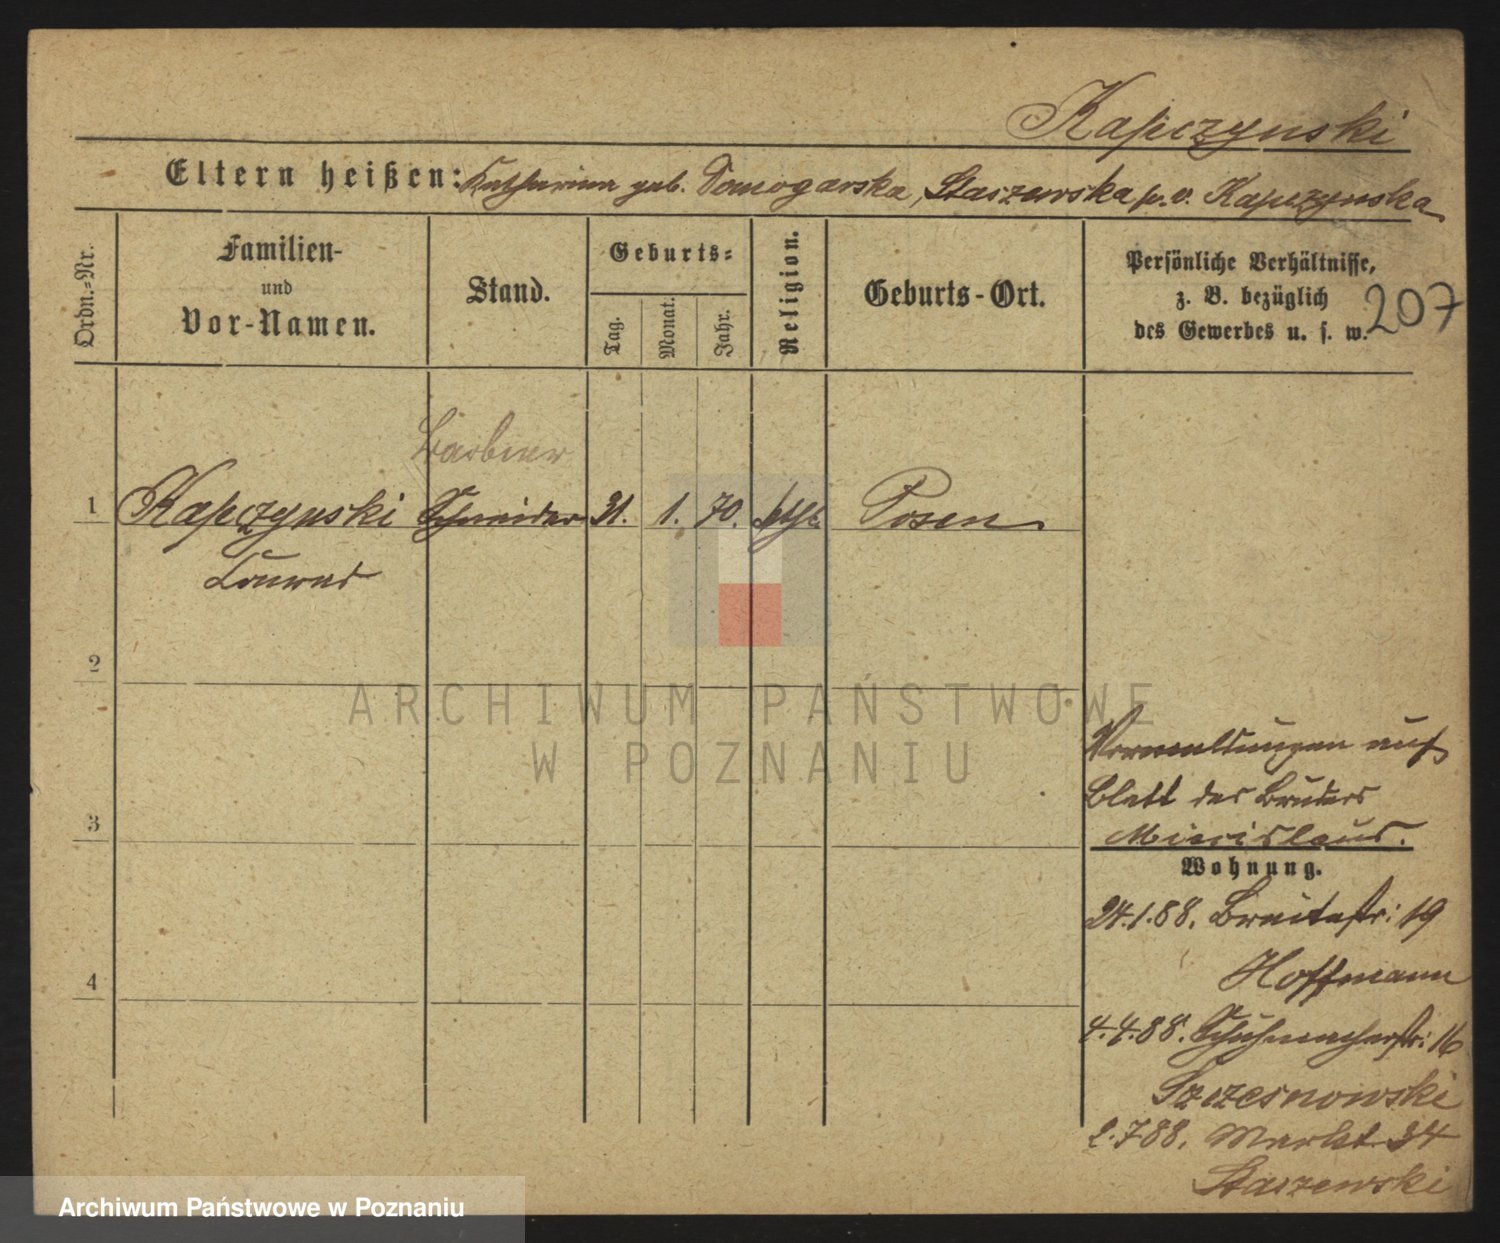 Kapczynski
Eltern heißen: Katharina geb. Domogarska, Staszewska p. v. Kapczynska
Ordn.-Nr.
Familien-
und
Vor-Namen.
Stand.
Geburts-
Tag.
Monat.
Jahr.
Religion.
Geburts-Ort.
Persönliche Verhältnisse,
z. B. bezüglich
des Gewerbes u. s. w.
207
Barbier
1 Kapczynski Schneider 31. 1. 70. kth Posen
Conrad
2
ARCHIWUM PAŃSTWOWE
W POZNANIU
3
4
Vermeldungen auf
Blatt des Bruders
Miecislaus.
Wohnung.
24.1.88. Breitestr: 19
Hoffmann
4.4.88. Schuhmacherstr: 16
Szczesnowski
2.7.88. Markt 34
Staszewski
Archiwum Państwowe w Poznaniu